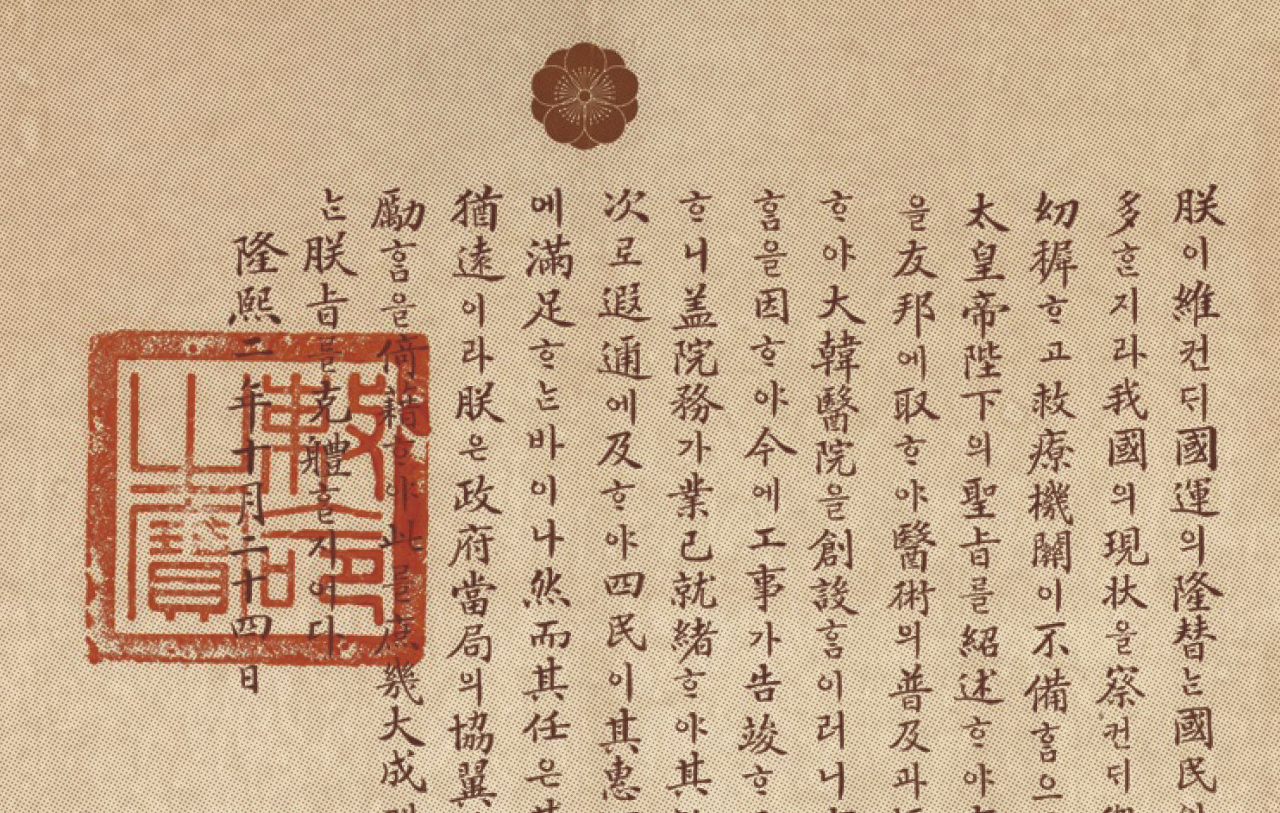 朕이維컨ᄃᆡ國運의隆替ᄂᆞᆫ國民
多ᄒᆞᆫ지라我國의現狀을察컨ᄃᆡ
幼穉ᄒᆞ고救療機關이不備ᄒᆞᆷ으
太皇帝陛下의聖旨를紹述ᄒᆞ야
을友邦에取ᄒᆞ야醫術의普及과
ᄒᆞ야大韓醫院을創設ᄒᆞᆷ이러니
ᄒᆞᆷ을因ᄒᆞ야今에工事가告竣ᄒᆞ
ᄒᆞ니盖院務가業已就緖ᄒᆞ야其
次로遐邇에及ᄒᆞ야四民이其惠
에滿足ᄒᆞᄂᆞᆫ바이나然而其任은
猶遠이라朕은政府當局의協翼
勵ᄒᆞᆷ을倚藉ᄒᆞ야此를庶幾大成
ᄂᆞᆫ朕旨를克體ᄒᆞᆯ지어다
隆熙二年十月二十四日
敕命之寶